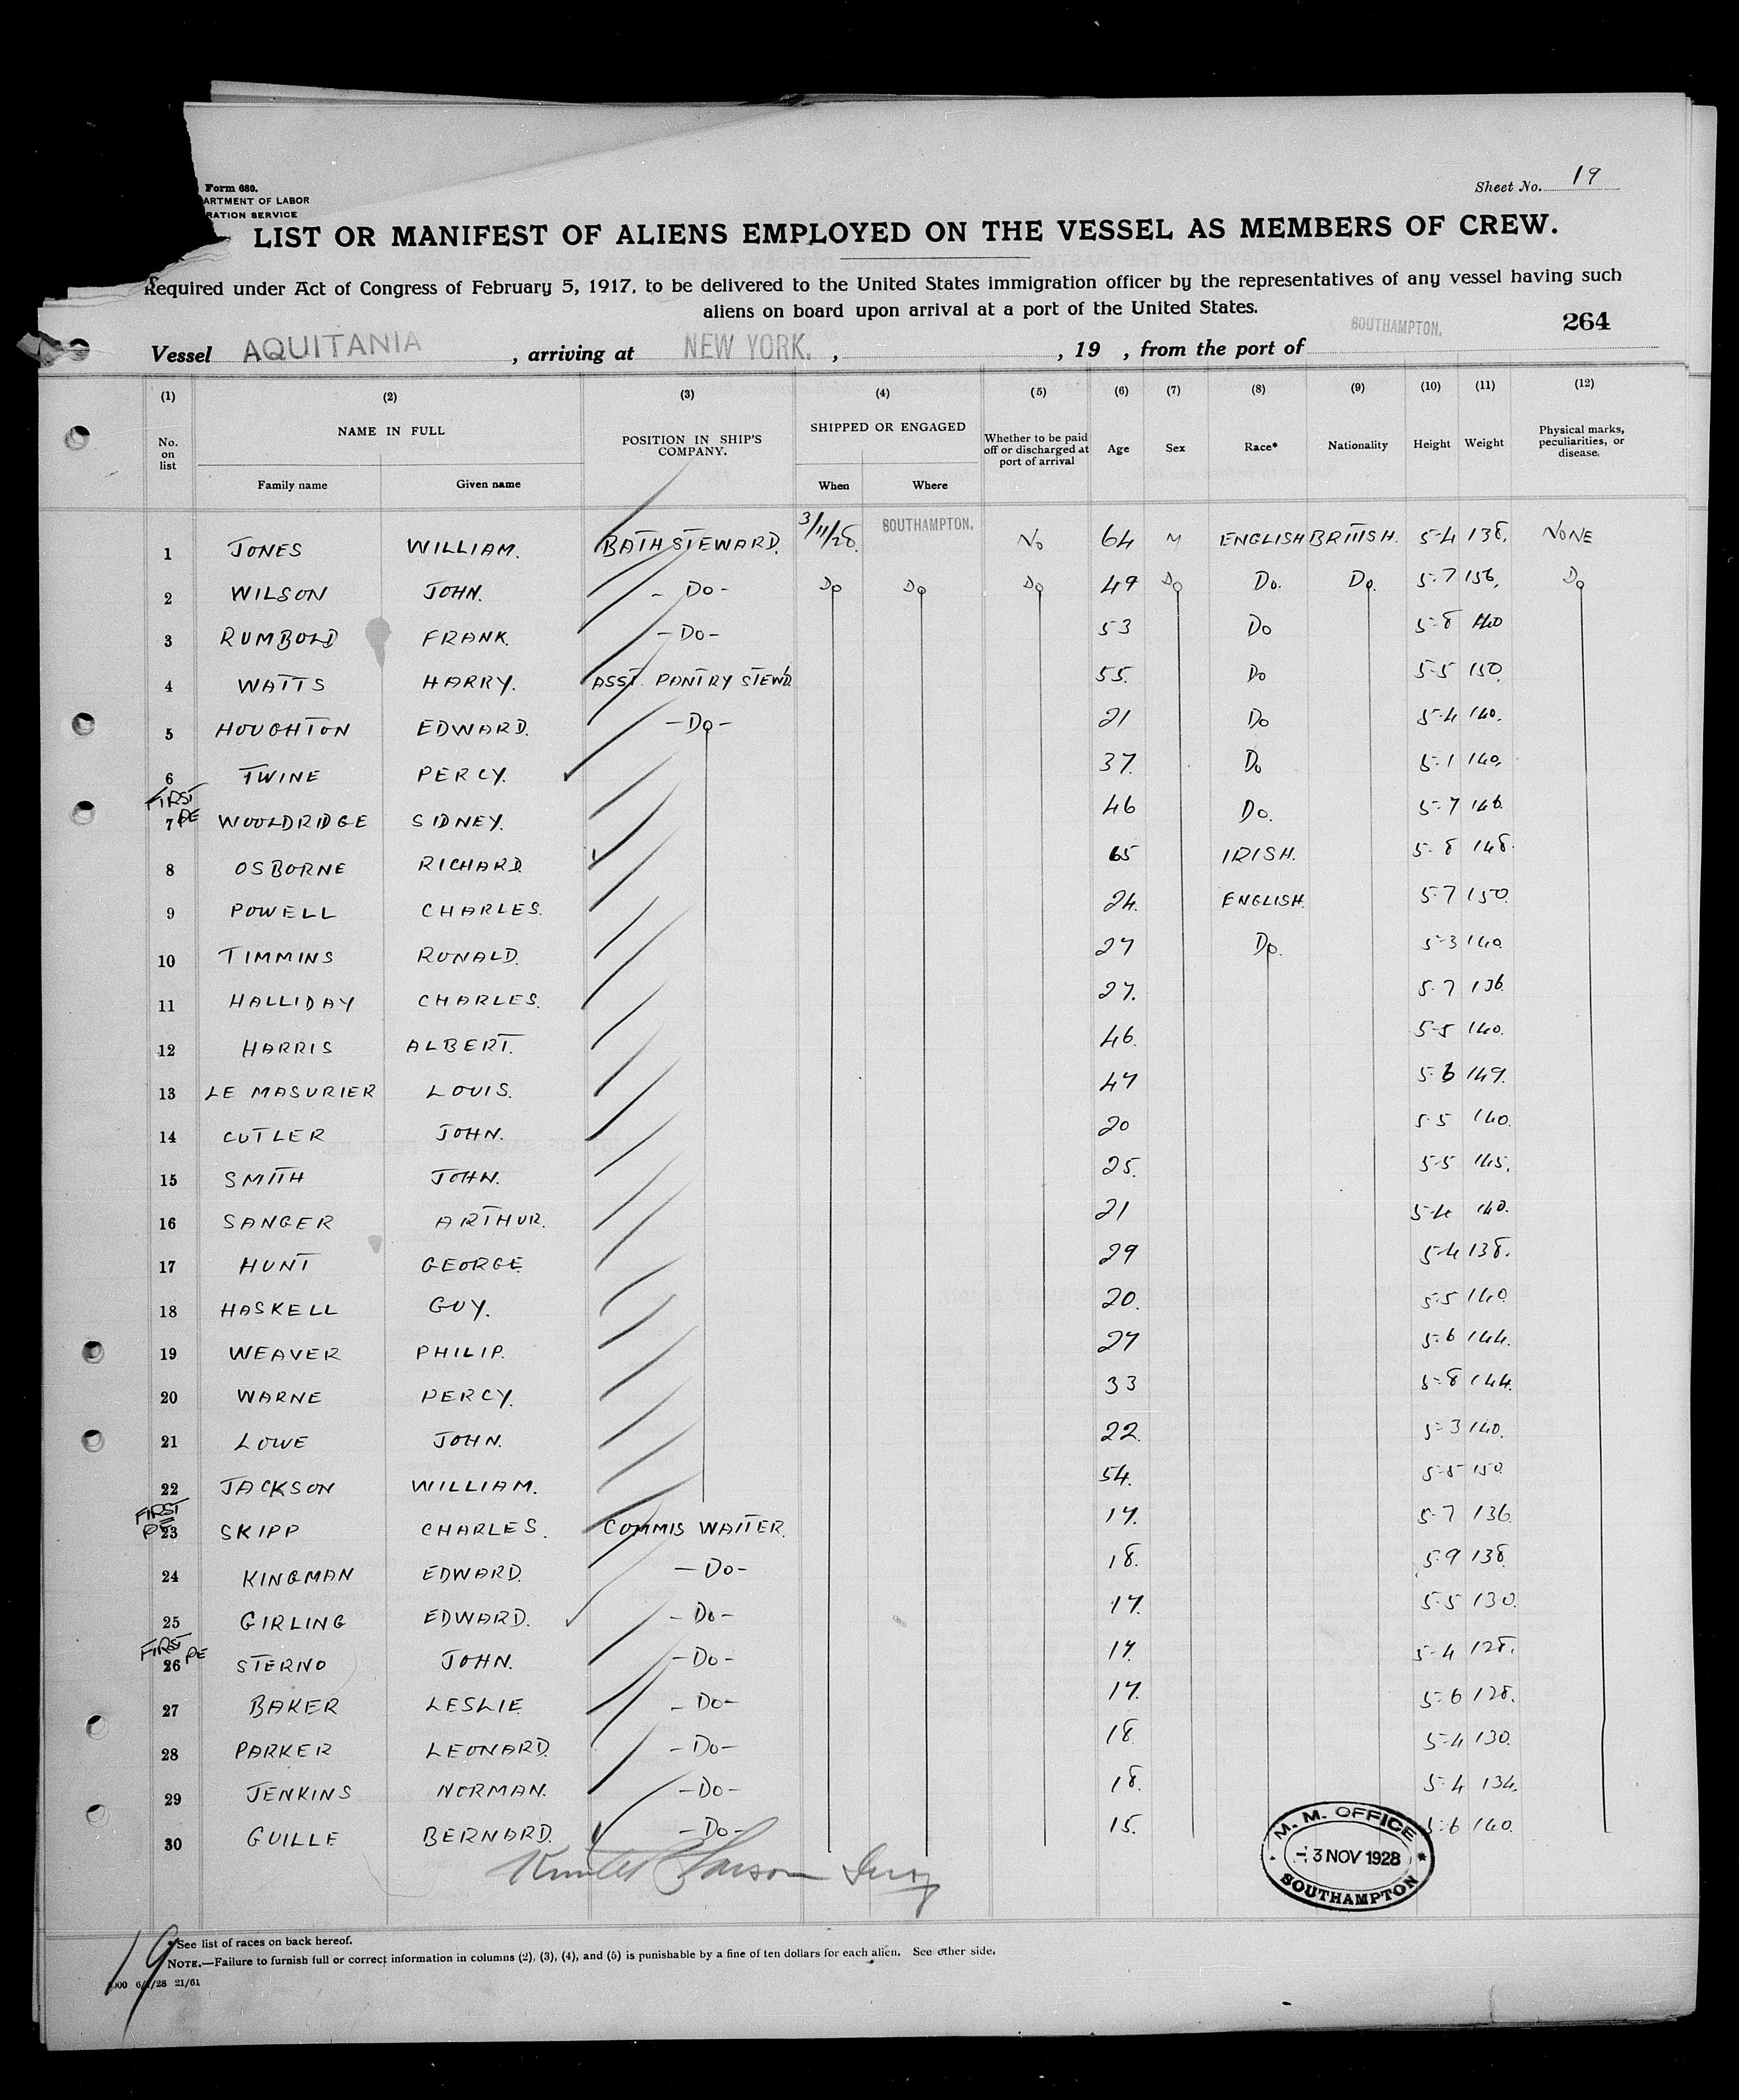 Form 680.
ARTMENT OF LABOR
RATION SERVICE
Sheet No. 19
LIST OR MANIFEST OF ALIENS EMPLOYED ON THE VESSEL AS MEMBERS OF CREW.
Required under Act of Congress of February 5, 1917, to be delivered to the United States immigration officer by the representatives of any vessel having such
aliens on board upon arrival at a port of the United States.
264
Vessel AQUITANIA, arriving at NEW YORK., , 19 , from the port of SOUTHAMPTON.
(1) (2) (3) (4) (5) (6) (7) (8) (9) (10) (11) (12)
No. on list NAME IN FULL POSITION IN SHIP'S COMPANY. SHIPPED OR ENGAGED Whether to be paid off or discharged at port of arrival Age Sex Race* Nationality Height Weight Physical marks, peculiarities, or disease.
Family name Given name When Where
1 JONES WILLIAM. BATH STEWARD. 3/11/28. SOUTHAMPTON. No 64 M ENGLISH BRITISH. 5-4 138. NONE
2 WILSON JOHN. - Do - Do Do Do 49 Do Do. Do. 5-7 156. Do
3 RUMBOLD FRANK. - Do - 53 Do 5-8 140
4 WATTS HARRY. ASST. PANTRY STEWD. 55. Do 5-5 150.
5 HOUGHTON EDWARD. - Do - 21 Do 5-4 140.
6 TWINE PERCY. 37. Do 5-1 140.
FIRST
7 PE WOOLDRIDGE SIDNEY. 46 Do. 5-7 146.
8 OSBORNE RICHARD. 65 IRISH. 5-8 148.
9 POWELL CHARLES. 24. ENGLISH. 5-7 150.
10 TIMMINS RONALD. 27 Do. 5-3 140.
11 HALLIDAY CHARLES. 27. 5-7 136.
12 HARRIS ALBERT. 46. 5-5 140.
13 LE MASURIER LOUIS. 47 5-6 149.
14 CUTLER JOHN. 20 5-5 140.
15 SMITH JOHN. 25. 5-5 145.
16 SANGER ARTHUR. 21 5-4 140.
17 HUNT GEORGE. 29 5-4 138.
18 HASKELL GUY. 20. 5-5 140.
19 WEAVER PHILIP. 27 5-6 144.
20 WARNE PERCY. 33 5-8 144.
21 LOWE JOHN. 22. 5-3 140.
22 JACKSON WILLIAM. 54. 5-5 150.
FIRST
PE 23 SKIPP CHARLES. COMMIS WAITER. 17. 5-7 136.
24 KINGMAN EDWARD. - Do - 18. 5-9 138.
25 GIRLING EDWARD. - Do - 17. 5-5 130.
FIRST PE
26 STERNO JOHN. - Do - 17. 5-4 128.
27 BAKER LESLIE. - Do - 17. 5-6 128.
28 PARKER LEONARD. - Do - 18. 5-4 130.
29 JENKINS NORMAN. - Do - 18. 5-4 134.
30 GUILLE BERNARD. - Do - 15. 5-6 140.
M. M. OFFICE
-3 NOV 1928
SOUTHAMPTON
* See list of races on back hereof.
NOTE.—Failure to furnish full or correct information in columns (2), (3), (4), and (5) is punishable by a fine of ten dollars for each alien. See other side.
19